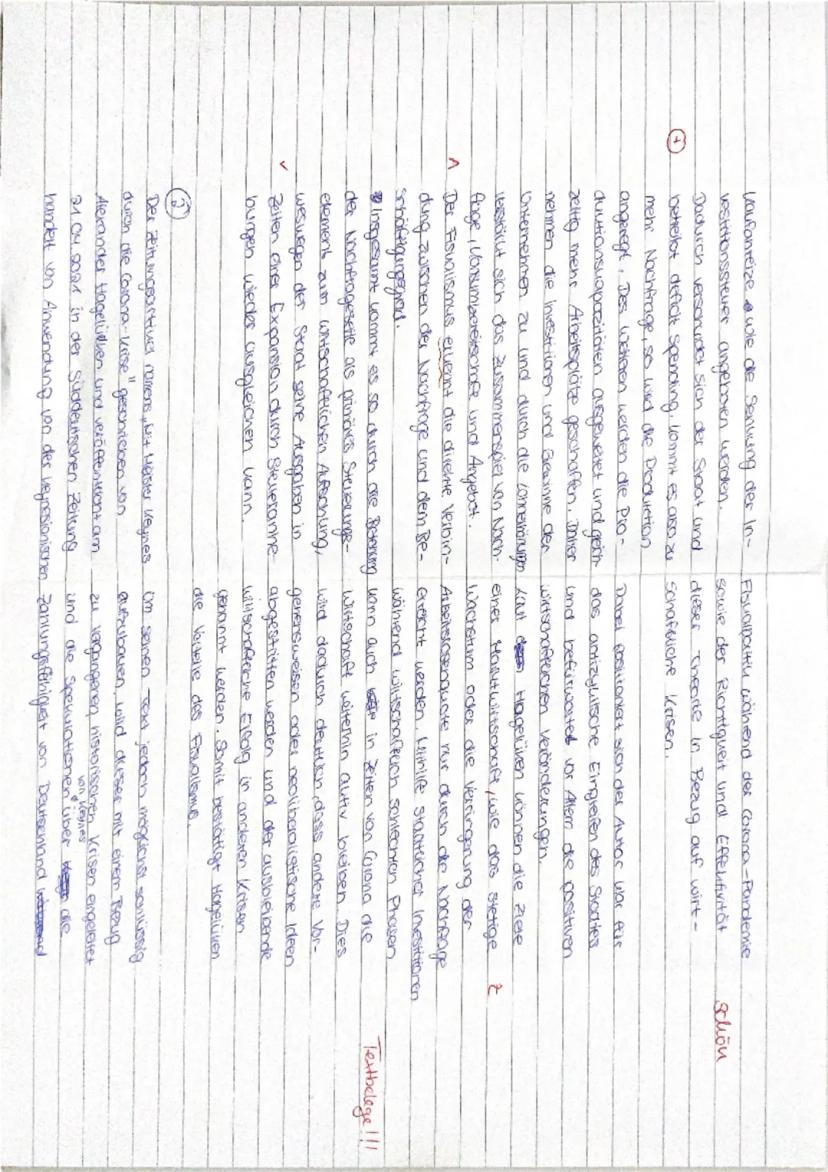 Kaufanreize wie die Senkung der In-
vestitionssteuer angehoben werden.
Dadurch verschuldet sich der Staat und
betreibt deficit spending. Kommt es also zu
mehr Nachfrage, so wird die Produktion
angeregt. Des weiteren werden die Pro-
duktionskapazitäten ausgeweitet und gleich-
zeitig mehr Arbeitsplätze geschaffen. Daher
nehmen die Investitionen und Gewinne der
Unternehmen zu und durch die Lohnerhöhungen
verstärkt sich das Zusammenspiel von Nach-
frage, Konsumbereitschaft und Angebot.
Der Fiskalismus erkennt die direkte Verbin-
dung zwischen der Nachfrage und dem Be-
schäftigungsgrad.
Insgesamt kommt es so durch die
der Nachfrageseite als primäres Steuerungs-
element zum wirtschaftlichen Aufschwung,
weswegen der Staat seine Ausgaben in
Zeiten einer Expansion durch Steuereinnah-
bungen wieder ausgleichen kann.
2
Der Zeitungsartikel namens "Mister Keynes
durch die Corona-Krise" geschrieben von
Alexander Hagelüken und veröffentlicht am
21.04.2021 in der Süddeutschen Zeitung
handelt von Anwendung von der keynesianischen
Fiskalpolitik während der Corona-Pandemie
sowie der Richtigkeit und Effektivität
dieser Theorie in Bezug auf wirt-
schaftliche Krisen.
Dabei positioniert sich der Autor klar für
das antizyklische Eingreifen des Staates
und befürwortet vor Allem die positiven
wirtschaftlichen Veränderungen.
Laut Hagelüken können die Ziele
einer Marktwirtschaft, wie das stetige
Wachstum oder die Verringerung der
Arbeitslosenquote nur durch die Nachfrage
erreicht werden. Mithilfe staatlicher Investitionen
während wirtschaftlich schlechten Phasen
kann auch in Zeiten von Corona die
Wirtschaft weiterhin aktiv bleiben. Dies
wird dadurch deutlich, dass andere Vor-
gehensweisen oder neoliberalistische Ideen
abgestritten werden und der ausbleibende
wirtschaftliche Erfolg in anderen Krisen
genannt werden. Somit bestätigt Hagelüken
die Vorteile des Fiskalismus.
Um seinen Text jedoch möglichst schlüssig
aufzubauen, wird dieser mit einem Bezug
zu vergangenen, historischen Krisen eingeleitet
und die Spekulationen von Keynes über die
Zahlungsfähigkeit von Deutschland
schön
Z
Textbelege!!!